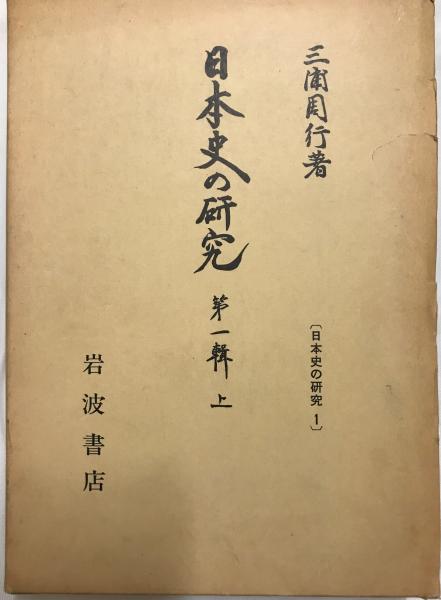 三浦周行著
日本史の研究 第一輯 上
〔日本史の研究 1〕
岩波書店